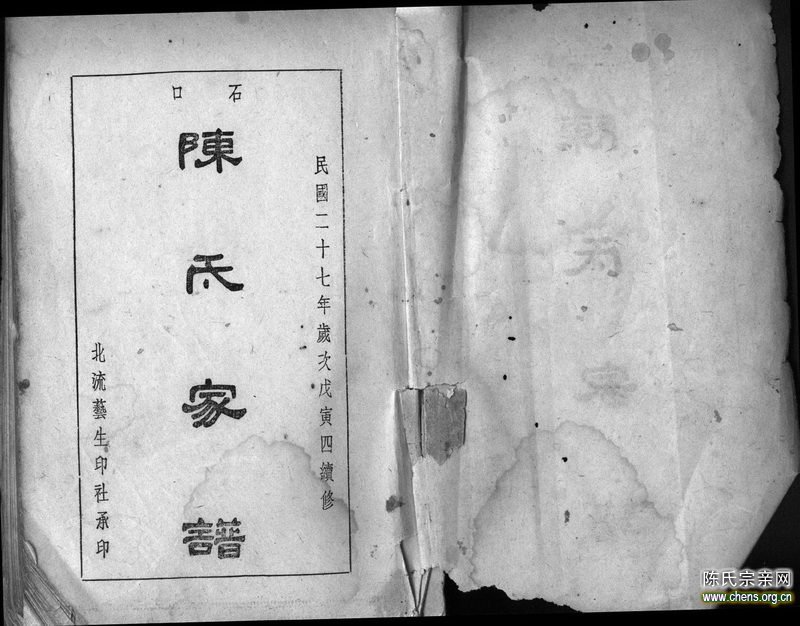 民國二十七年歲次戊寅四續修
石口
陳氏家譜
北流藝生印社承印
陈氏宗亲网
www.chens.org.cn